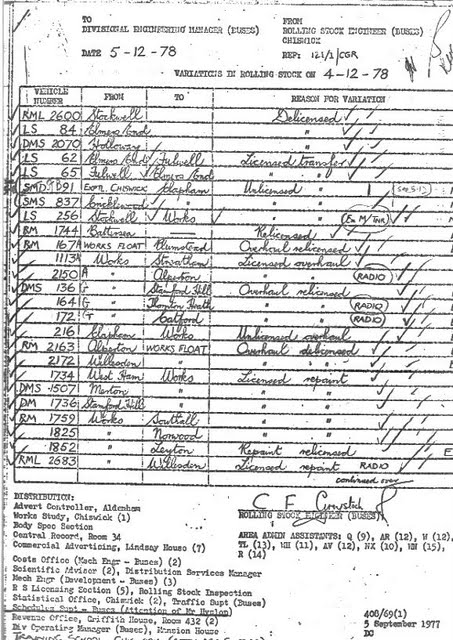 TO FROM
DIVISIONAL ENGINEERING MANAGER (BUSES) ROLLING STOCK ENGINEER (BUSES)
CHISWICK
DATE 5-12-78 REF: 121/1/CGR
VARIATIONS IN ROLLING STOCK ON 4-12-78
VEHICLE NUMBER FROM TO REASON FOR VARIATION
RML 2600 Stockwell Delicensed
LS 84 Elmers End "
DMS 2070 Holloway "
LS 62 Elmers End Fulwell Licensed transfer
LS 65 Fulwell Elmers End " "
SMD 91 EXPTL. CHISWICK Clapham Unlicensed "
SMS 837 Cricklewood " "
LS 256 Stockwell Works " " (Ex M/THR)
RM 1744 Battersea Relicensed
RM 167 WORKS FLOAT Plumstead Overhaul relicensed
1113 Works Streatham Licensed overhaul
2150 " Alperton " " RADIO
DMS 136 " Stamford Hill Overhaul relicensed
164 " Thornton Heath " " RADIO
172 " Catford " " RADIO
216 Clapham Works Unlicensed overhaul
RM 2163 Alperton WORKS FLOAT Overhaul delicensed
2172 Willesden " " "
1734 West Ham Works Licensed repaint
DMS 1507 Merton " " "
DM 1736 Stamford Hill " " "
RM 1759 Works Southall " "
1825 " Norwood " "
1852 " Leyton Repaint relicensed
RML 2683 " Willesden Licensed repaint RADIO
continued over
DISTRIBUTION:
Advert Controller, Aldenham
Works Study, Chiswick (1) ROLLING STOCK ENGINEER (BUSES)
Body Spec Section
Central Record, Room 34 AREA ADMIN ASSISTANTS: Q (9), AR (12), W (12),
Commercial Advertising, Lindsay House (7) TL (13), WH (11), AV (12), NX (10), HN (15),
R (14)
Costs Office (Mech Engr - Buses) (2)
Scientific Advisor (2), Distribution Services Manager
Mech Engr (Development - Buses) (3)
R S Licensing Section (5), Rolling Stock Inspection
Statistical Office, Chiswick (2), Traffic Supt (Buses)
Schedules Supt - Buses (Attention of Mr Hynion) 400/69(1)
Revenue Office, Griffith House, Room 432 (2) 5 September 1977
Div Operating Manager (Buses), Mansion House DO